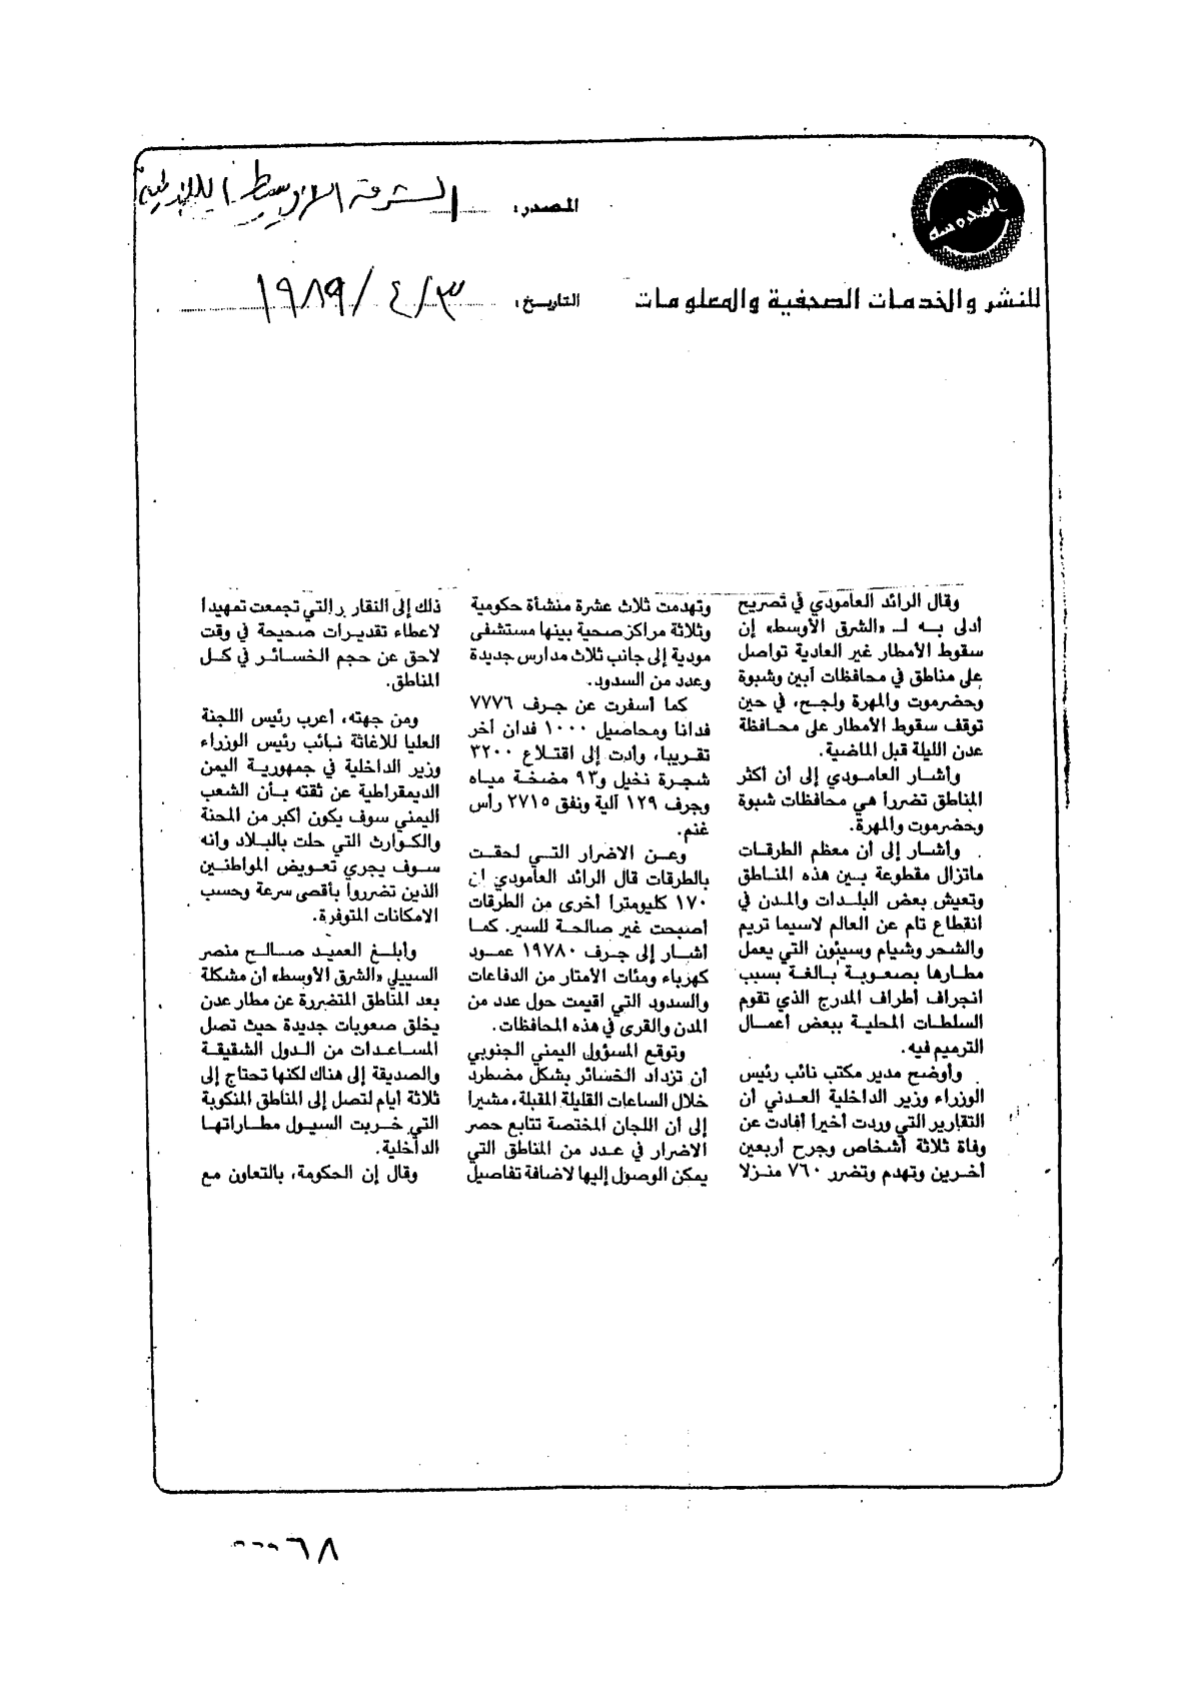 المصدر: الشرق الأوسط اللندنية
المدرسة
للنشر والخدمات الصحفية والمعلومات
التاريخ: ١٩٨٩/٤/٣
وقال الرائد العامودي في تصريح
أدلى به لـ «الشرق الأوسط» إن
سقوط الأمطار غير العادية تواصل
على مناطق في محافظات أبين وشبوة
وحضرموت والمهرة ولحج، في حين
توقف سقوط الأمطار على محافظة
عدن الليلة قبل الماضية.
وأشار العامودي إلى أن أكثر
المناطق تضرراً هي محافظات شبوة
وحضرموت والمهرة.
وأشار إلى أن معظم الطرقات
ماتزال مقطوعة بين هذه المناطق
وتعيش بعض البلدات والمدن في
انقطاع تام عن العالم لاسيما تريم
والشحر وشبام وسيئون التي يعمل
مطارها بصعوبة بالغة بسبب
انجراف أطراف المدرج الذي تقوم
السلطات المحلية ببعض أعمال
الترميم فيه.
وأوضح مدير مكتب نائب رئيس
الوزراء وزير الداخلية العدني أن
التقارير التي وردت أخيراً أفادت عن
وفاة ثلاثة أشخاص وجرح أربعين
آخرين وتهدم وتضرر ٧٦٠ منزلا
وتهدمت ثلاث عشرة منشأة حكومية
وثلاثة مراكز صحية بينها مستشفى
مودية إلى جانب ثلاث مدارس جديدة
وعدد من السدود.
كما أسفرت عن جرف ٧٧٧٦
فدانا ومحاصيل ١٠٠٠ فدان أخر
تقريبا، وأدت إلى اقتلاع ٣٢٠٠
شجرة نخيل و٩٣ مضخة مياه
وجرف ١٢٩ آلية ونفق ٢٧١٥ رأس
غنم.
وعن الاضرار التي لحقت
بالطرقات قال الرائد العامودي ان
١٧٠ كليومترا أخرى من الطرقات
أصبحت غير صالحة للسير. كما
أشار إلى جرف ١٩٧٨٠ عمود
كهرباء ومئات الأمتار من الدفاعات
والسدود التي اقيمت حول عدد من
المدن والقرى في هذه المحافظات.
وتوقع المسؤول اليمني الجنوبي
أن تزداد الخسائر بشكل مضطرد
خلال الساعات القليلة المقبلة، مشيرا
إلى أن اللجان المختصة تتابع حصر
الاضرار في عدد من المناطق التي
يمكن الوصول إليها لاضافة تفاصيل
ذلك إلى التقارير التي تجمعت تمهيدا
لاعطاء تقديرات صحيحة في وقت
لاحق عن حجم الخسائر في كل
المناطق.
ومن جهته، أعرب رئيس اللجنة
العليا للاغاثة نائب رئيس الوزراء
وزير الداخلية في جمهورية اليمن
الديمقراطية عن ثقته بأن الشعب
اليمني سوف يكون أكبر من المحنة
والكوارث التي حلت بالبلاد وأنه
سوف يجري تعويض المواطنين
الذين تضرروا بأقصى سرعة وحسب
الامكانات المتوفرة.
وأبلغ العميد صالح منصر
السييلي «الشرق الأوسط» أن مشكلة
بعد المناطق المتضررة عن مطار عدن
يخلق صعوبات جديدة حيث تصل
المساعدات من الدول الشقيقة
والصديقة إلى هناك لكنها تحتاج إلى
ثلاثة أيام لتصل إلى المناطق المنكوبة
التي خربت السيول مطاراتها
الداخلية.
وقال إن الحكومة، بالتعاون مع
٦٨